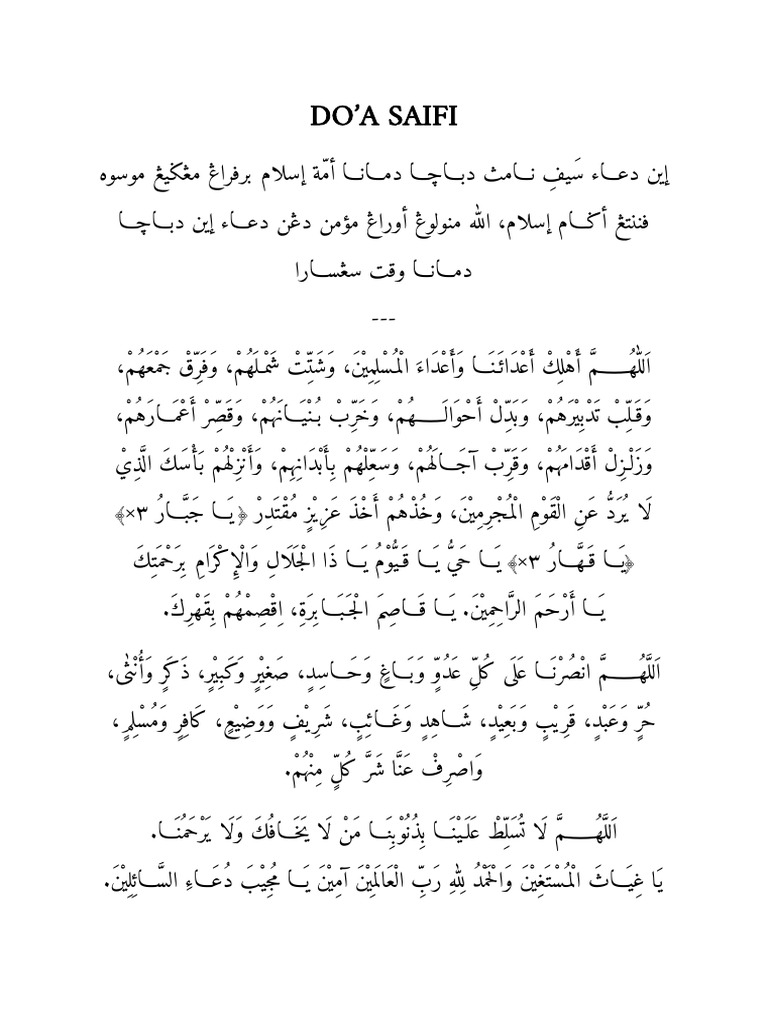 DO'A SAIFI
إين دعاء سَيفِ نامث دباچا دمانا أمّة إسلام برفراڠ مڠكيڠ موسوه
فننتڠ أݢام إسلام، الله منولوڠ أوراڠ مؤمن دڠن دعاء إين دباچا
دمانا وقت سڠسارا
---
اَللّٰهُمَّ أَهْلِكْ أَعْدَائَنَا وَأَعْدَاءَ الْمُسْلِمِيْنَ، وَشَتِّتْ شَمْلَهُمْ، وَفَرِّقْ جَمْعَهُمْ،
وَقَلِّبْ تَدْبِيْرَهُمْ، وَبَدِّلْ أَحْوَالَهُمْ، وَخَرِّبْ بُنْيَانَهُمْ، وَقَصِّرْ أَعْمَارَهُمْ،
وَزَلْزِلْ أَقْدَامَهُمْ، وَقَرِّبْ آجَالَهُمْ، وَسَعِّلْهُمْ بِأَبْدَانِهِمْ، وَأَنْزِلْهُمْ بَأْسَكَ الَّذِيْ
لَا يُرَدُّ عَنِ الْقَوْمِ الْمُجْرِمِيْنَ، وَخُذْهُمْ أَخْذَ عَزِيْزٍ مُقْتَدِرْ ﴿يَا جَبَّارُ ٣×﴾
﴿يَا قَهَّارُ ٣×﴾ يَا حَيُّ يَا قَيُّوْمُ يَا ذَا الْجَلَالِ وَالْإِكْرَامِ بِرَحْمَتِكَ
يَا أَرْحَمَ الرَّاحِمِيْنَ. يَا قَاصِمَ الْجَبَابِرَةِ، اِقْصِمْهُمْ بِقَهْرِكَ.
اَللَّهُمَّ انْصُرْنَا عَلَى كُلِّ عَدُوٍّ وَبَاغٍ وَحَاسِدٍ، صَغِيْرٍ وَكَبِيْرٍ، ذَكَرٍ وَأُنْثٰى،
حُرٍّ وَعَبْدٍ، قَرِيْبٍ وَبَعِيْدٍ، شَاهِدٍ وَغَائِبٍ، شَرِيْفٍ وَوَضِيْعٍ، كَافِرٍ وَمُسْلِمٍ،
وَاصْرِفْ عَنَّا شَرَّ كُلٍّ مِنْهُمْ.
اَللَّهُمَّ لَا تُسَلِّطْ عَلَيْنَا بِذُنُوْبِنَا مَنْ لَا يَخَافُكَ وَلَا يَرْحَمُنَا.
يَا غِيَاثَ الْمُسْتَغِيْنَ وَالْحَمْدُ لِلّٰهِ رَبِّ الْعَالَمِيْنَ آمِيْنَ يَا مُجِيْبَ دُعَاءِ السَّائِلِيْنَ.